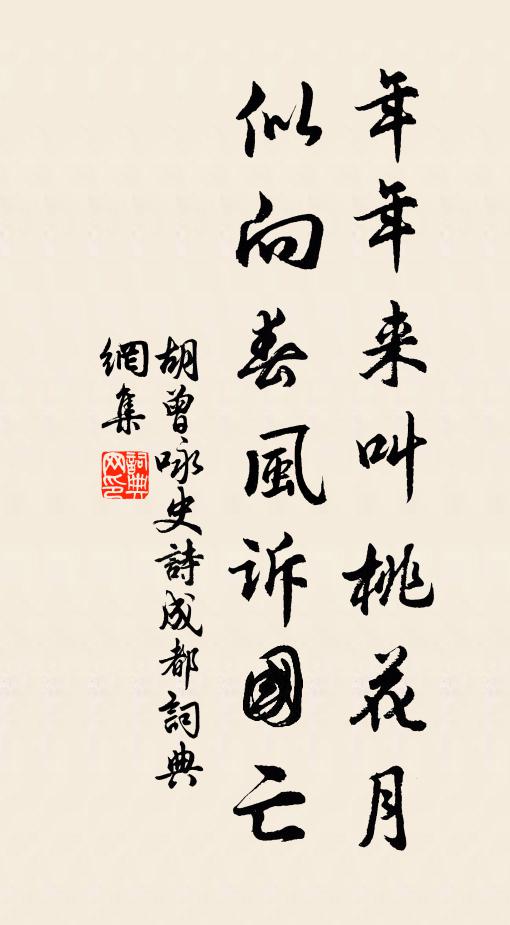 年年来叫桃花月
似向春風訴國亡
胡曾咏史詩成都詞典
網集
詞典網印